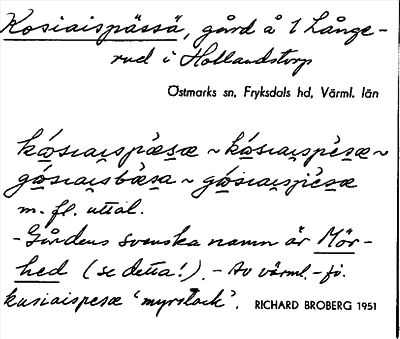 Kosiaispässä, gård å 1 Långe-
rud i Hollandstorp
Östmarks sn, Fryksdals hd, Värml. län
kɷsıaı̯spæsæ ~ kɷsıaı̯spèsæ ~
gɷsıaı̯sbæsa ~ gɷsıaı̯spèsæ
m. fl. uttal.
- Gårdens svenska namn är Mör-
hed (se detta!). - Av värml.-fi.
kusiaispesæ 'myrstack'. RICHARD BROBERG 1951